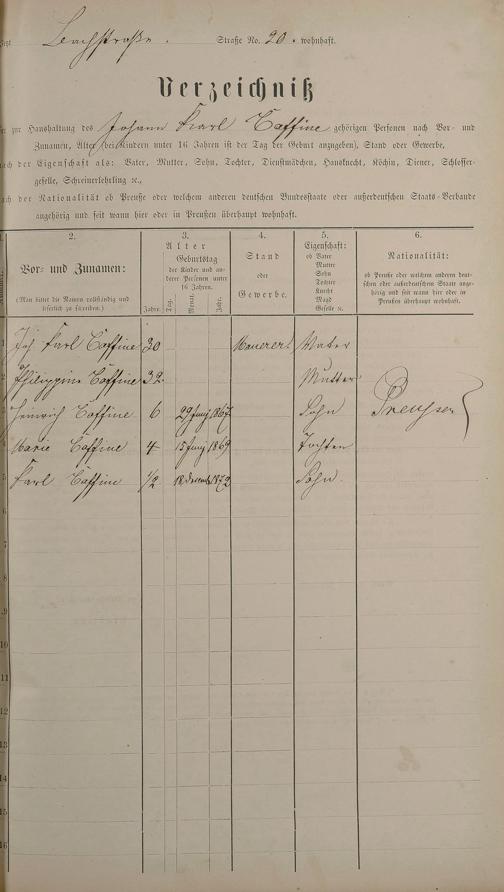 Bachstraße. Straße No. 20. wohnhaft.
Verzeichniß
zur Haushaltung des Johann Karl Caffine gehörigen Personen nach Vor- und
Zunamen, Alter (bei Kindern unter 16 Jahren ist der Tag der Geburt anzugeben), Stand oder Gewerbe,
nach der Eigenschaft als: Vater, Mutter, Sohn, Tochter, Dienstmädchen, Hausknecht, Köchin, Diener, Schlosser-
geselle, Schreinerlehrling ꝛc.,
nach der Nationalität ob Preuße oder welchem anderen deutschen Bundesstaate oder außerdeutschen Staats-Verbande
angehörig und seit wann hier oder in Preußen überhaupt wohnhaft.
2. 3. 4. 5. 6.
Vor- und Zunamen:
(Man bittet die Namen vollständig und
leserlich zu schreiben.)
Alter
Geburtstag
der Kinder und an-
derer Personen unter
16 Jahren.
Jahre. Tag. Monat. Jahr.
Stand
oder
Gewerbe.
Eigenschaft:
ob Vater
Mutter
Sohn
Tochter
Knecht
Magd
Geselle ꝛc.
Nationalität:
ob Preuße oder welchem anderen deut-
schen oder außerdeutschen Staate ange-
hörig und seit wann hier oder in
Preußen überhaupt wohnhaft.
1 Joh. Karl Caffine 30 Maurer Vater
2 Philippine Caffine 32 Mutter
Heinrich Caffine 6 29 Juny 1867 Sohn Preussen
Marie Caffine 4 15 Juny 1869 Tochter
5 Karl Caffine 1/2 18 1872 Sohn.
6
7
8
9
10
11
12
13
14
15
16